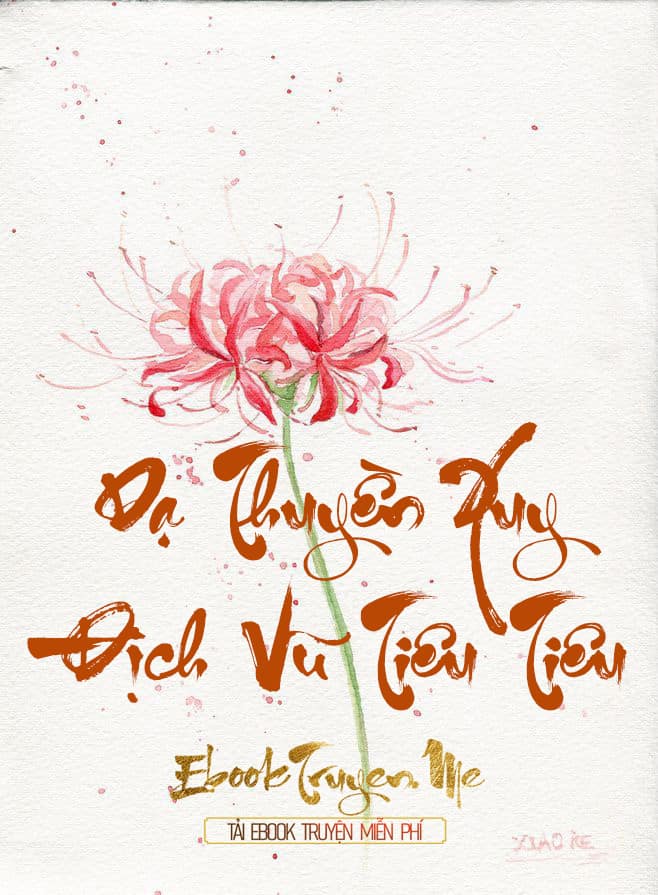 Dạ Thuyền Xuy
Địch Vũ Tiêu Tiêu
EbookTruyen.Me
TẢI EBOOK TRUYỆN MIỄN PHÍ
XIAO KE